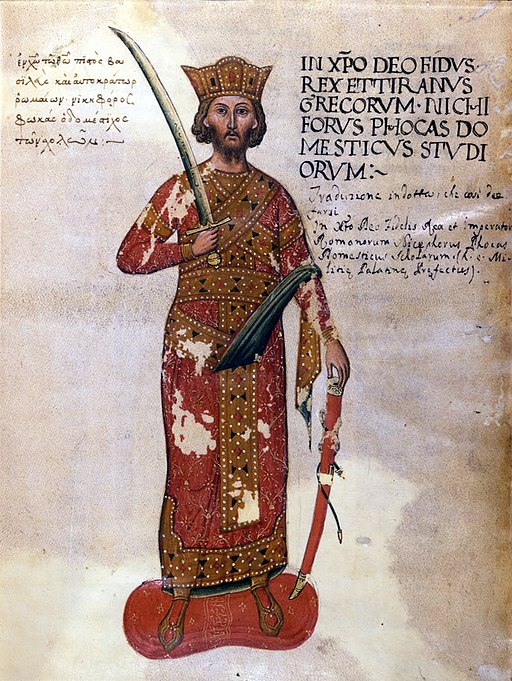 ἐν χ͞ω τῶ θ͞ω πιστὸς βα
σιλεὺς καὶ αὐτοκράτωρ
ρωμαίων· νικηφόρος
φωκᾶς ὁ δομέστιχος
τῶν σχολῶν: ~
IN XP̅O DEO FIDVS·
REX ET TIRANVS
GRECORVM· NICHI
FORVS PHOCAS DO
MESTICVS STVDI
ORVM:~
Traduzione indotta, che così dee
farsi
in Xp̅o Deo Fidelis Rex et Imperator
Romanorum Nicephorus Phocas
Domesticus Scholarum (h. e. Mi-
litiæ Palatinæ Præfectus).